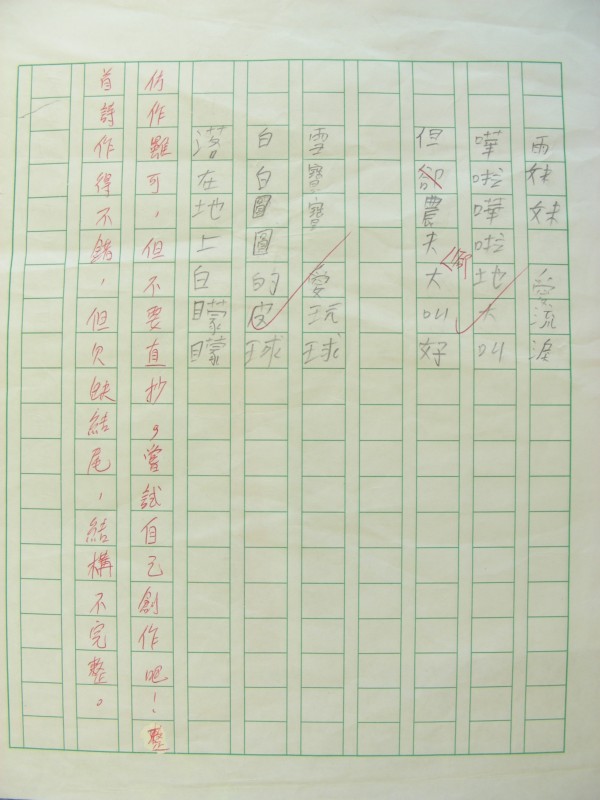 雨妹妹愛流淚
嘩啦嘩啦地大叫
但卻農夫大叫好
卻
雪寶寶愛玩球
白白圓圓的皮球
落在地上白矇矇
仿作雖可，但不要直抄，嘗試自己創作吧！整
首詩作得不錯，但欠缺結尾，結構不完整。